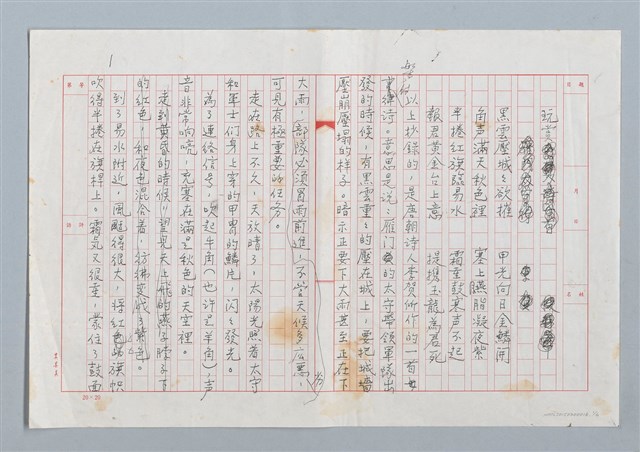 玩雲
黑雲壓城々欲摧　甲光向日金鱗開
角声滿天秋色裡　塞上臙脂凝夜紫
半捲紅旗臨易水　霜重鼓寒声不起
報君黃金台上意　提携玉龍為君死
以上抄錄的，是唐朝詩人李賀所作的一首
詩。意思是说：雁门的太守帶領軍隊出
發的時候，有黑雲重々的壓在城上，要把城墻
壓崩壓塌的样子。暗示正要下大雨甚至正在下
大雨，部隊必須冒雨前進，不管天候多么惡，
可見有極重要的任务。
走在路上不久，天放晴了，太陽光照着太守
和軍士们身上穿的甲冑的鱗片，闪々發光。
為了連絡信号，吹起牛角（也许是羊角）声
音非常响喨，充塞在滿是秋色的天空裡。
走到黃昏的時候，望見天上飛的燕子脖子下
的紅色，和夜色混合着，彷彿变成了紫色。
到了易水附近，風颳得很大，将紅色的旗幟
吹得半捲在旗桿上。霜气又很重，蒙住了鼓面
20×20